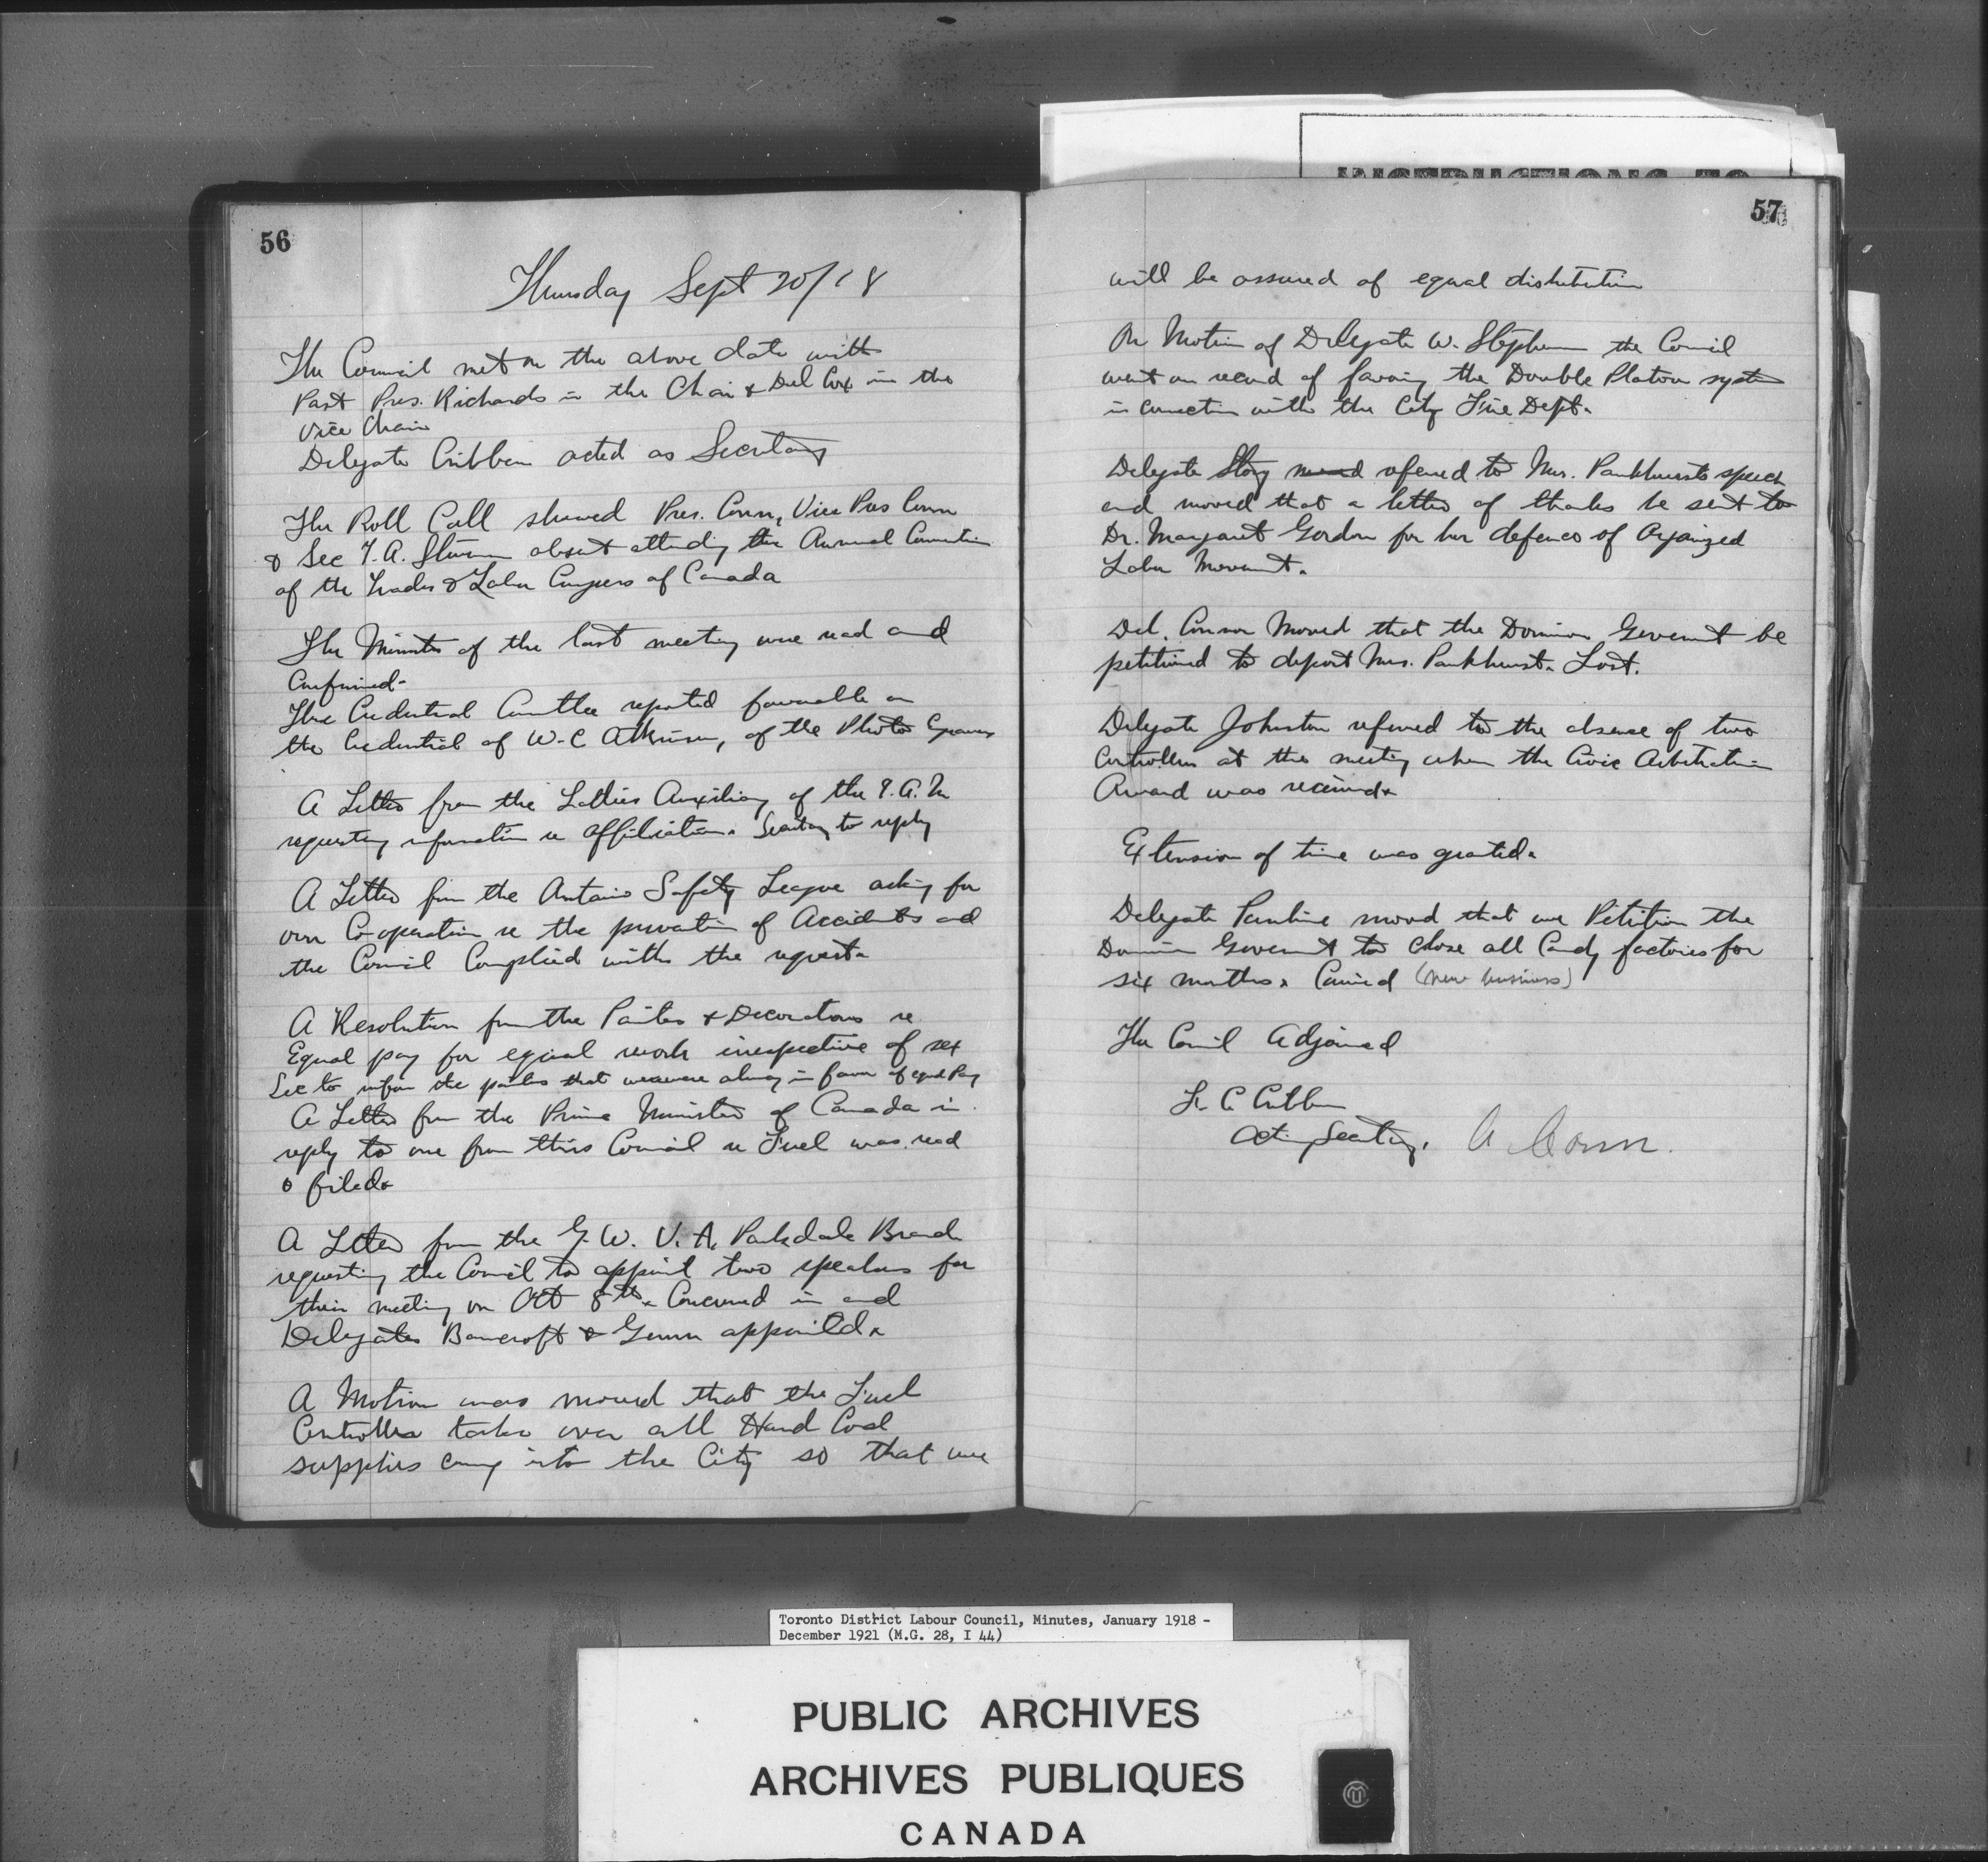 INSTRUCTIONS TO
56
Thursday Sept 20/18
The Council met on the above date with
Past Pres. Richards in the Chair & Del Cox in the
Vice Chair
Delegate Cribben acted as Secretary
The Roll Call showed Pres. Conn, Vice Pres Conn
& Sec T.A. Steven absent attending the Annual Convention
of the Trades & Labor Congress of Canada
The Minutes of the last meeting were read and
Confirmed-
The Credential Comttee reported favorable on
the Credential of W.C Atkinson, of the Photo Engravers
A Letter from the Ladies Auxiliary of the I.A.M
requesting information re affiliation. Secretary to reply
A Letter from the Ontario Safety League asking for
our Co-operation re the prevention of Accidents and
the Council Complied with the request.
A Resolution from the Painters & Decorators re
Equal pay for equal work irrespective of sex
Sec to inform the painters that we were always in favor of equal Pay
A Letter from the Prime Minister of Canada in
reply to one from this Council re Fuel was read
& filed.
A Letter from the G.W.V.A. Parkdale Branch
requesting the Council to appoint two speakers for
their meeting on Oct 8th. Concurred in and
Delegates Bancroft & Gunn appointed.
A Motion was moved that the Fuel
Controller take over all Hard Coal
supplies coming into the City so that we
57
will be assured of equal distribution
On Motion of Delegate W. Stephen the Council
went on record of favoring the Double Platoon system
in connection with the City Fire Dept.
Delegate Story moved refered to Mrs. Pankhursts speech
and moved that a letter of thanks be sent to
Dr. Margaret Gordon for her defence of Organized
Labor Movement.
Del. Connor Moved that the Dominion Goverment be
petitioned to deport Mrs. Pankhurst. Lost.
Delegate Johnston refered to the absence of two
Controllers at the meeting when the Civic Arbitration
Award was received.
Extension of time was granted.
Delegate moved that we Petition the
Dominion Goverment to close all Candy factories for
six months. Carried (new business)
The Council Adjourned
Cribben
Acting Secretary. A Conn.
Toronto District Labour Council, Minutes, January 1918 -
December 1921 (M.G. 28, I 44)
PUBLIC ARCHIVES
ARCHIVES PUBLIQUES
CANADA